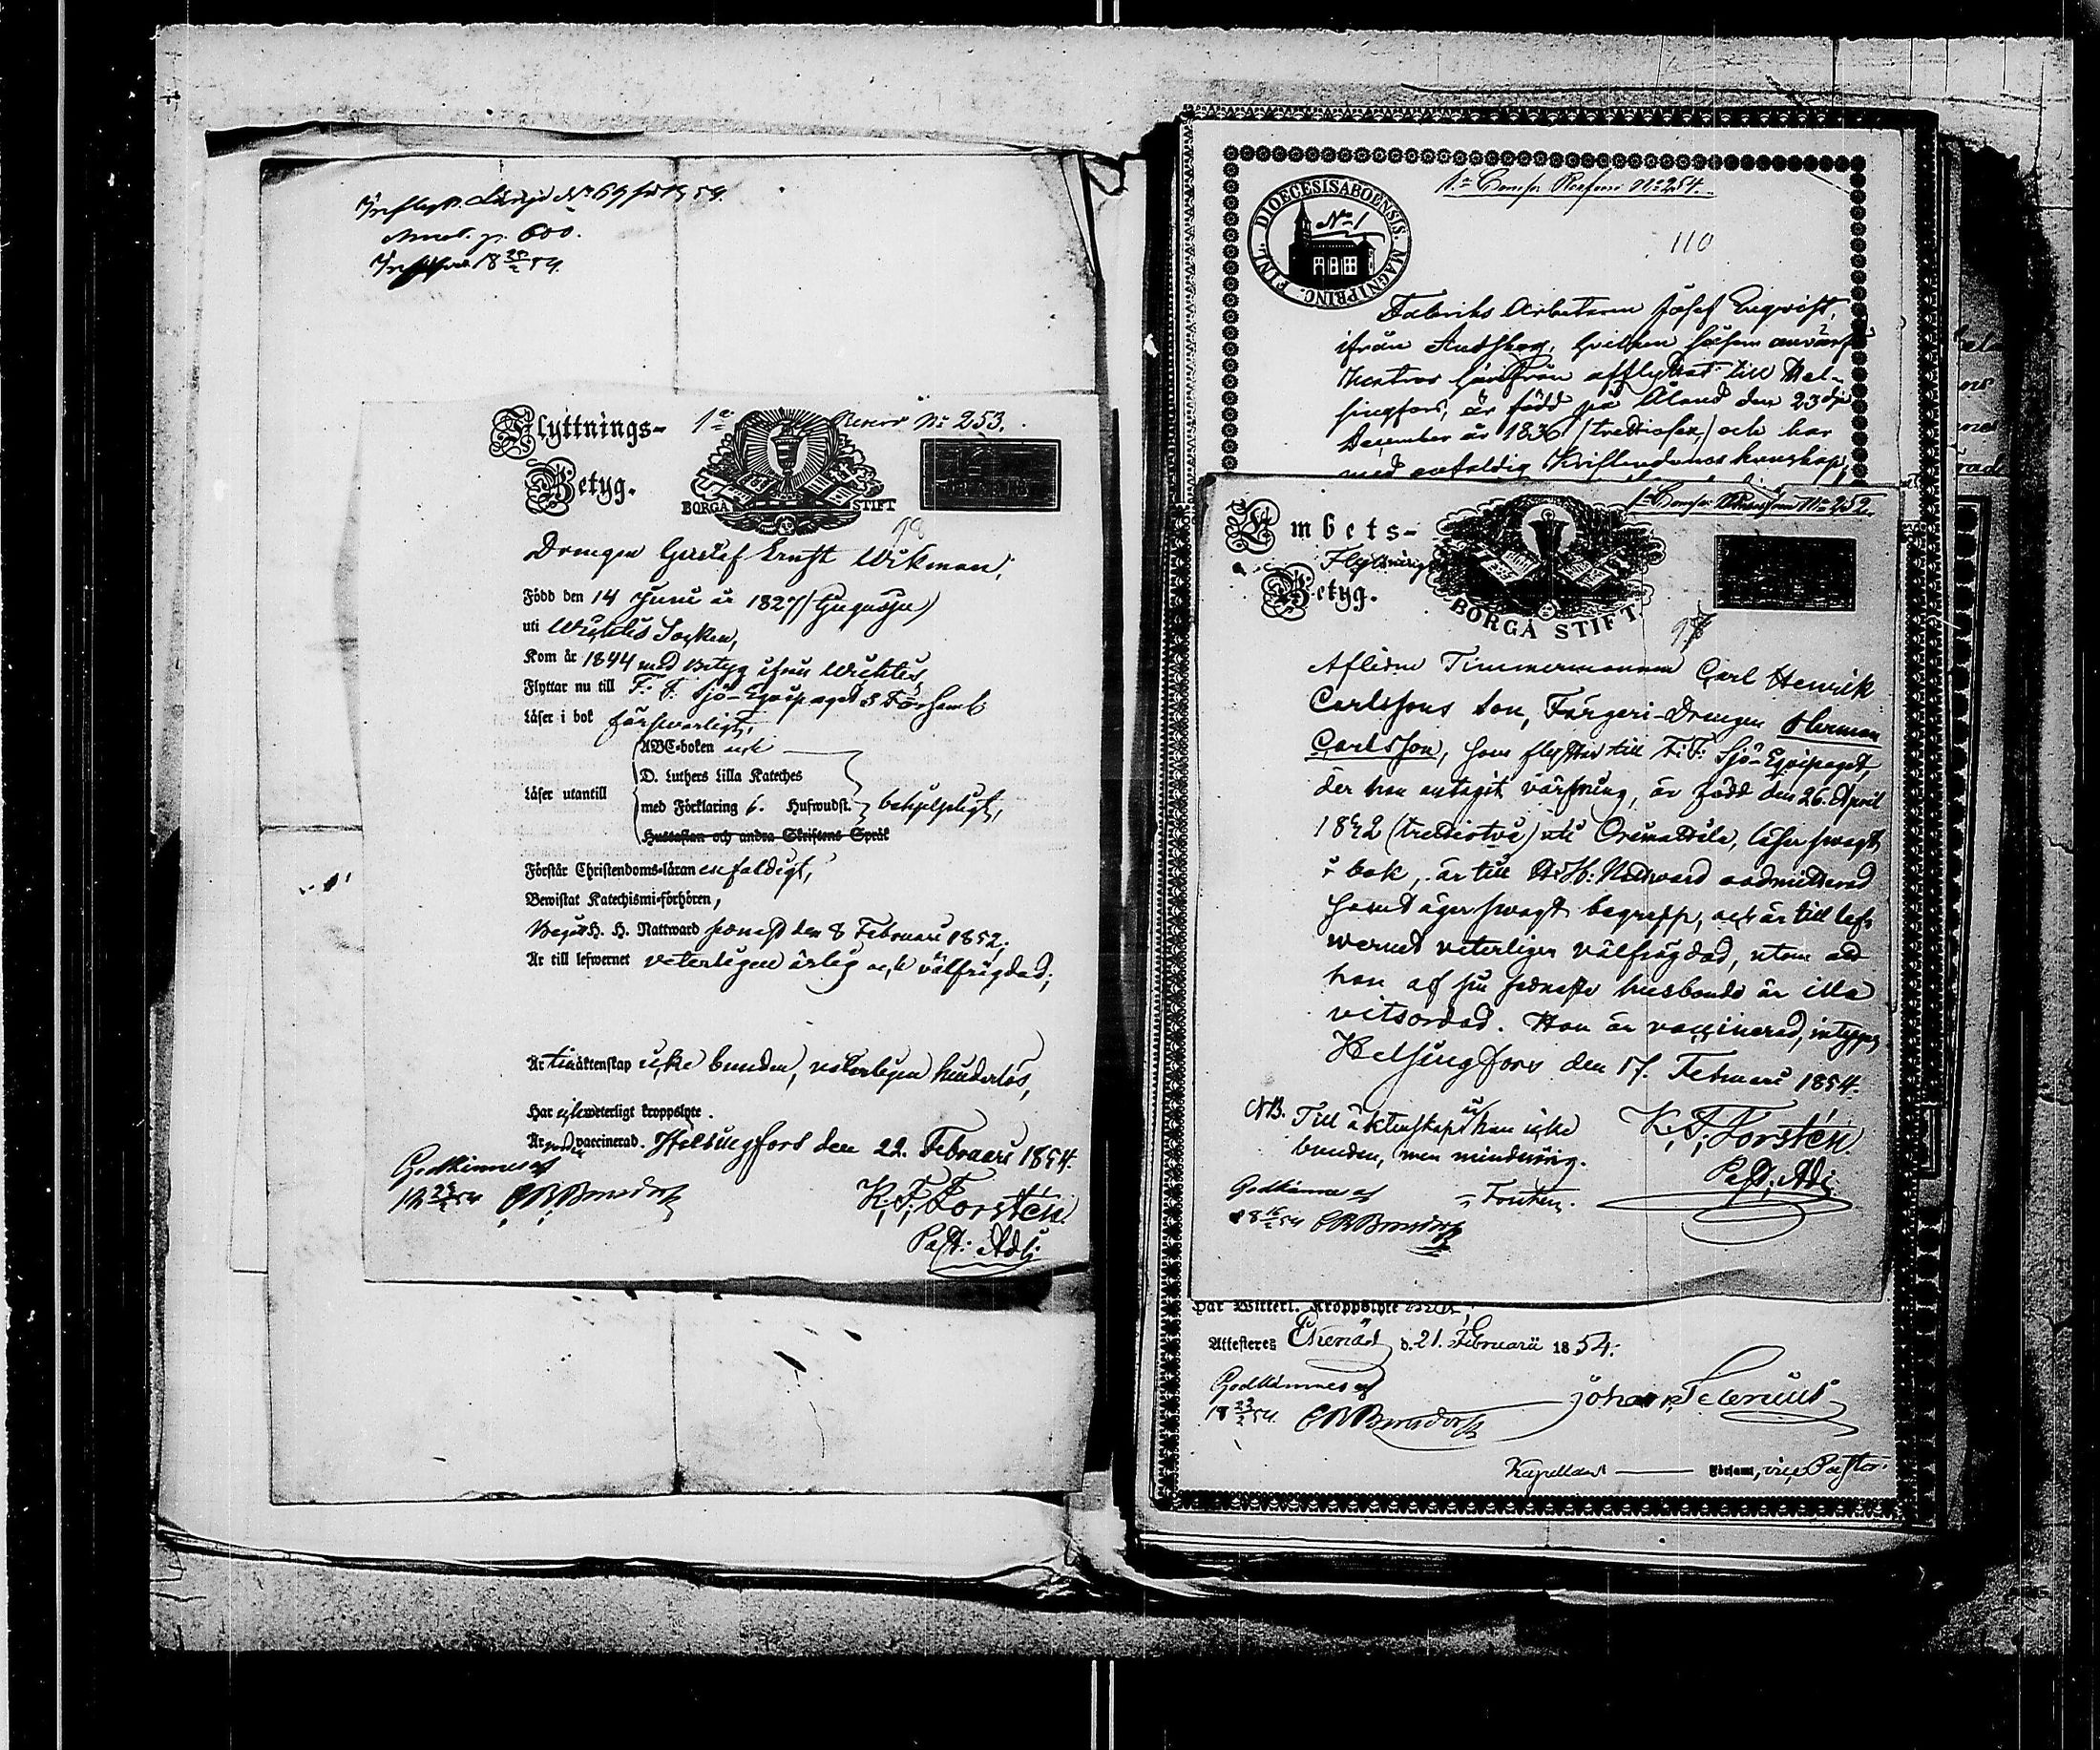 Inflyttn. Längd No 69 för 1854.
p. 600.
18 54.
Flyttnings-
1a Reserv No 253.
Betyg.
BORGÅ STIFT
98
Drengen Gustaf Ernst Wikman,
Född den 14 Juni år 1827 (tjugusju)
uti Wichtis Socken,
Kom år 1844 med betyg ifrån Wichtis,
Flyttar nu till F. F. Sjö-Equipagets Församl.
Läser i bok försvarligt,
ABC-boken och
D. Luthers Lilla Kateches
Läser utantill
med Förklaring 6. Hufwudst. behjelpligt,
Hustaflan och andra Skriftens Språk
Förstår Christendoms-läran enfaldigt,
Bewistat Katechismi-förhören,
Begått H. H. Nattward senast den 8 Februari 1852,
Är till lefwernet veterligen ärlig och välfrägdad;
Är till äktenskap icke bunden, veterligen hinderlös,
Har icke weterligt kroppslyte.
Är vaccinerad. Helsingfors den 22. Februari 1854.
Godkännes af
K. F. Forstén.
Past. Adj.
1a Comp. Reserv No 254.
DIOECESIS ABOENSIS. MAGNI PRINC. FINL.
No 1
110
Fabriks Arbetaren Josef Enqvist,
ifrån hvilken såsom
härifrån afflyttat till Hel-
singfors, är född på Åland den 23dje
December år 1836 (trettiosex) och har
med enfaldig Kristendoms kunskap,
1a Comp. No 252.
Embets-
Flyttnings
Betyg.
BORGÅ STIFT.
97
Aflidne Timmermannen Carl Henrik
Carlssons Son, Färgeri-Drengen Herman
Carlsson, som flyttar till F. F. Sjö-Equipaget,
der han antagit värfning, är född den 26. April
1832 (trettiotvå) uti Orimattila, läser svagt
i bok, är till H. H. Nattvard admitterad
samt äger svagt begrepp, och är till lef-
wernet veterligen välfrägdad, utom att
han af sin sednaste husbonde är illa
vitsordad. Han är vaccinerad, intygas
Helsingfors den 17. Februari 1854.
NB. Till äktenskap är han icke
bunden, men minderårig.
K. F. Forstén.
Past. Adj.
Godkännes af
Forstén.
Har Witterl. Kroppslyte
Attesteres Ekenäs d. 21. Februarii 1854.
Godkännes af
18 23/2 54.
Johan
Kapellans Församl. vice Pastor.